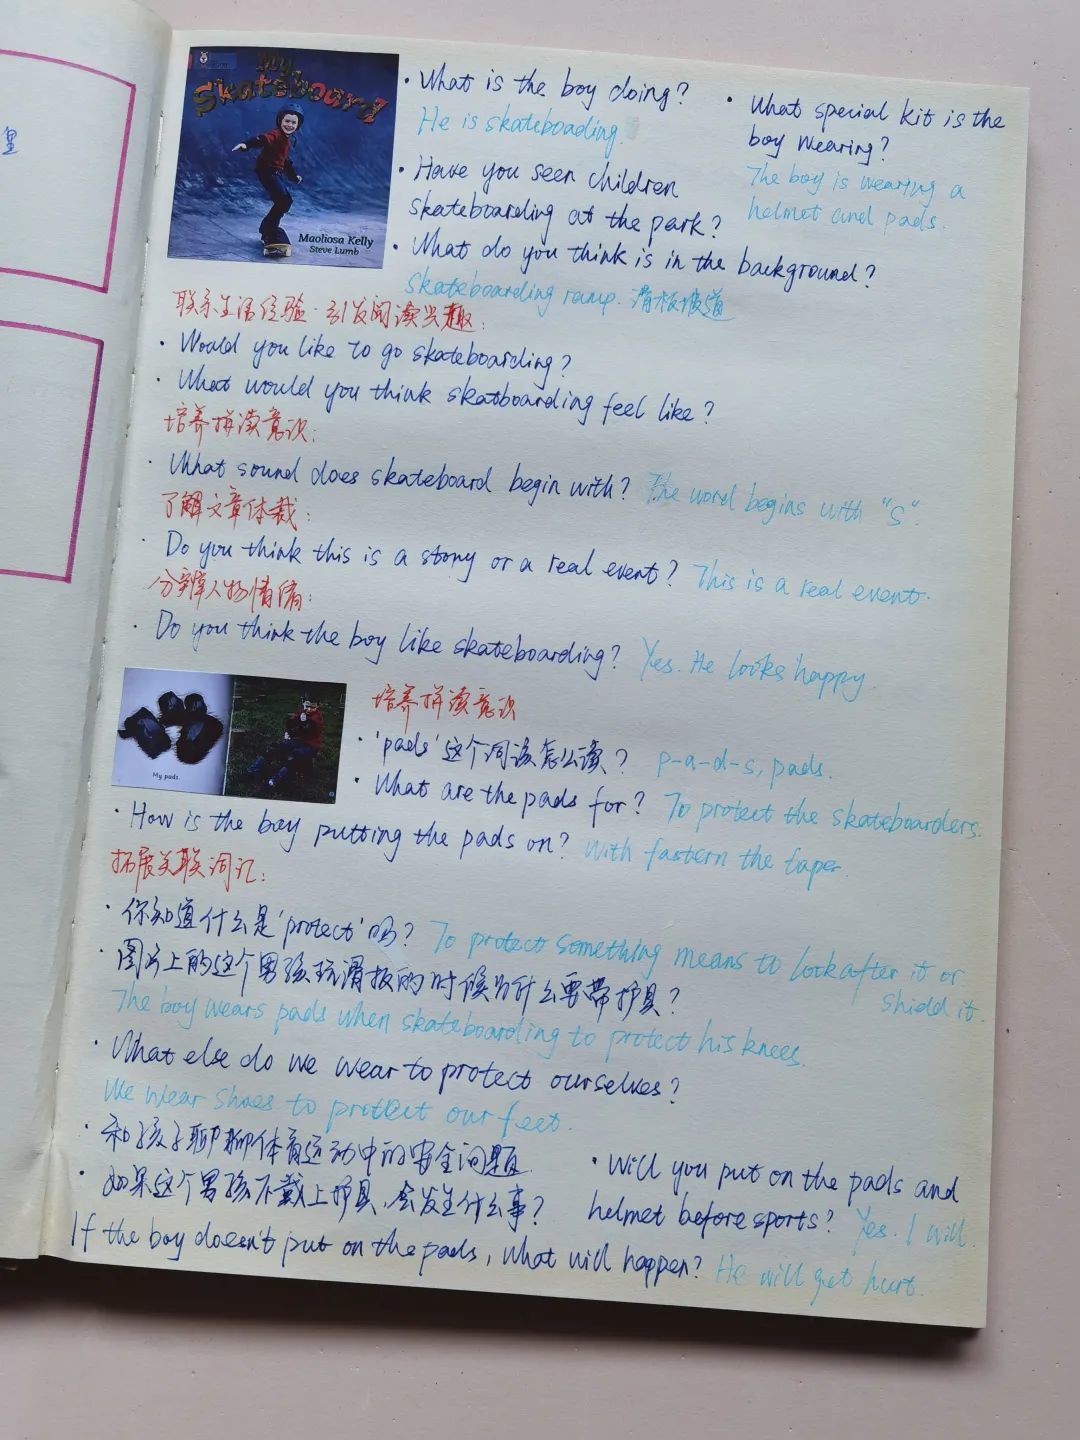 里
My
Skateboard
Maoliosa Kelly
Steve Lumb
· What is the boy doing?
He is skateboading.
· Have you seen children
skateboarding at the park?
· What special kit is the
boy wearing?
The boy is wearing a
helmet and pads.
· What do you think is in the background?
skateboarding ramp. 滑板坡道
联系生活经验·引发阅读兴趣:
· Would you like to go skateboarding?
· What would you think skatboarding feel like?
培养拼读意识:
· What sound does skateboard begin with? The word begins with "S".
了解文章体裁:
· Do you think this is a story or a real event? This is a real event.
分辨人物情绪:
· Do you think the boy like skateboarding? Yes. He looks happy.
My pads.
培养拼读意识
· 'pads'这个词该怎么读? p-a-d-s, pads.
· What are the pads for? To protect the skateboarders.
· How is the boy putting the pads on? with fastern the tape.
拓展关联词汇:
· 你知道什么是'protect'吗? To protect something means to look after it or
shield it.
· 图片上的这个男孩玩滑板的时候为什么要带护具?
The boy wears pads when skateboarding to protect his knees.
· What else do we wear to protect ourselves?
We wear shoes to protect our feet.
· 和孩子聊聊体育运动中的安全问题
· 如果这个男孩不戴上护具,会发生什么事?
· Will you put on the pads and
helmet before sports? Yes. I will.
If the boy doesn't put on the pads, what will happen? He will get hurt.